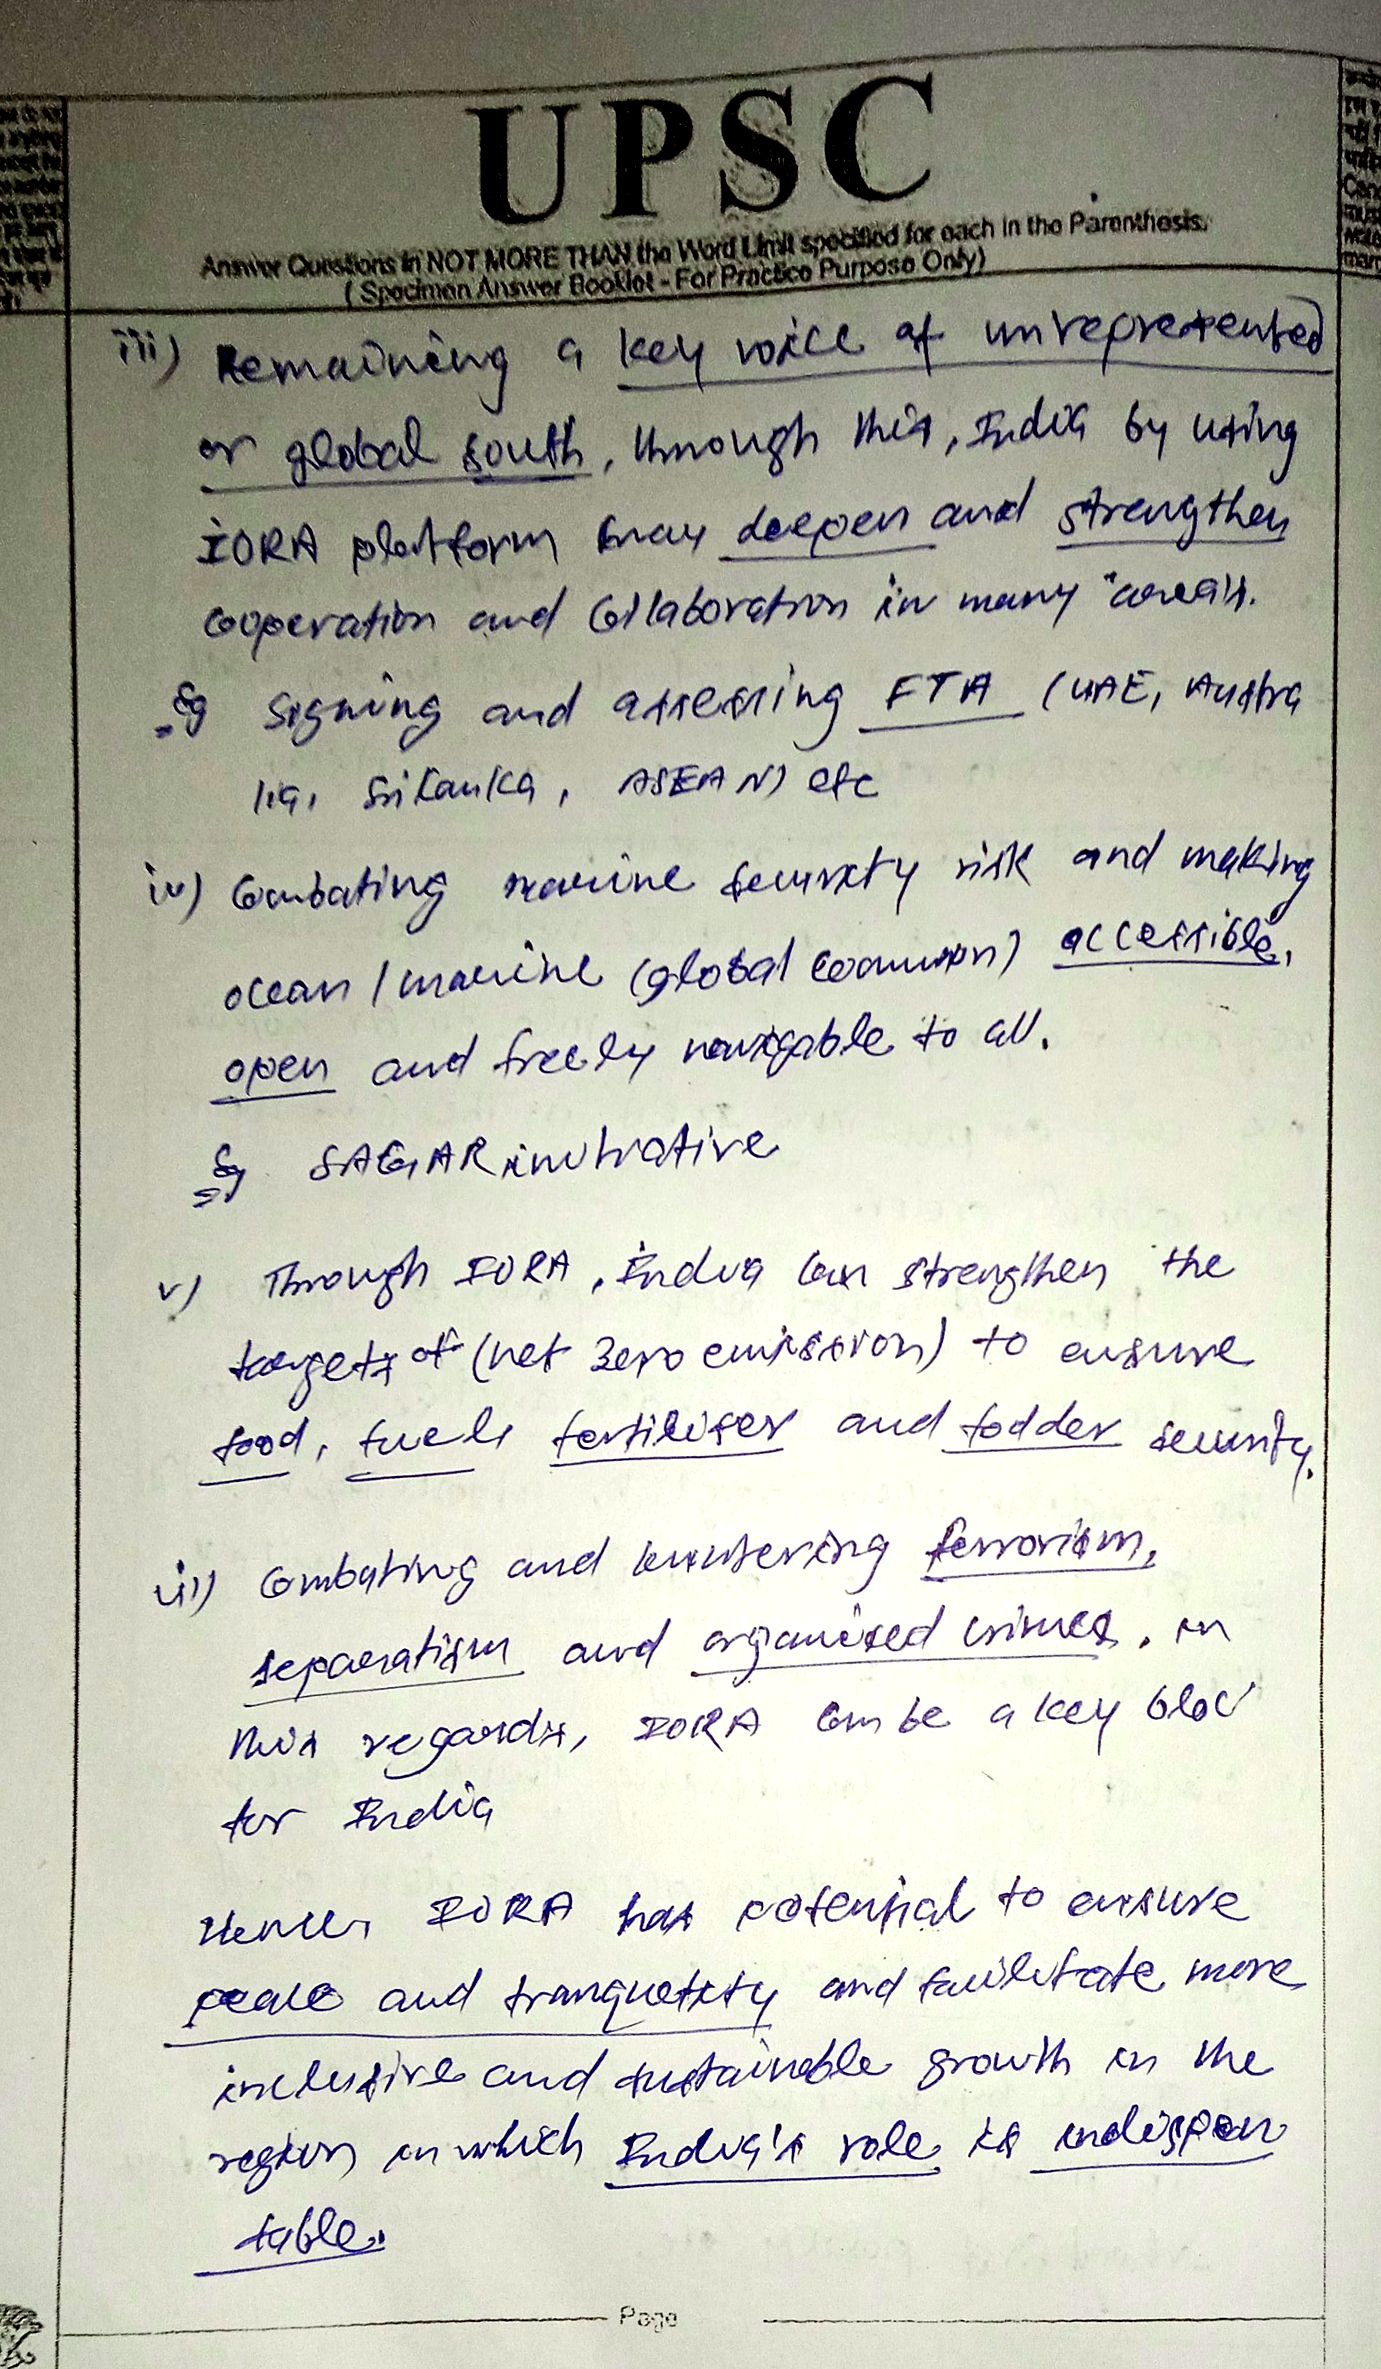 UPSC
Answer Questions in NOT MORE THAN the Word Limit specified for each in the Parenthesis.
( Specimen Answer Booklet - For Practice Purpose Only)
iii) Remaining a key voice of unrepresented
or global south, through this, India by using
IORA platform may deepen and strengthen
cooperation and collaboration in many areas.
Eg signing and assessing FTA (UAE, Austra
lia, Srilanka, ASEAN) etc
iv) Combating marine security risk and making
ocean / marine (global common) accessible,
open and freely navigable to all.
Eg SAGAR initiative
v) Through IORA, India can strengthen the
targets of (net zero emission) to ensure
food, fuel, fertiliser and fodder security.
vi) Combating and countering terrorism,
separatism and organised crimes, in
this regards, IORA can be a key bloc
for India
Hence, IORA has potential to ensure
peace and and facilitate more
inclusive and sustainable growth in the
region in which India's role is indispen
sable.
Page